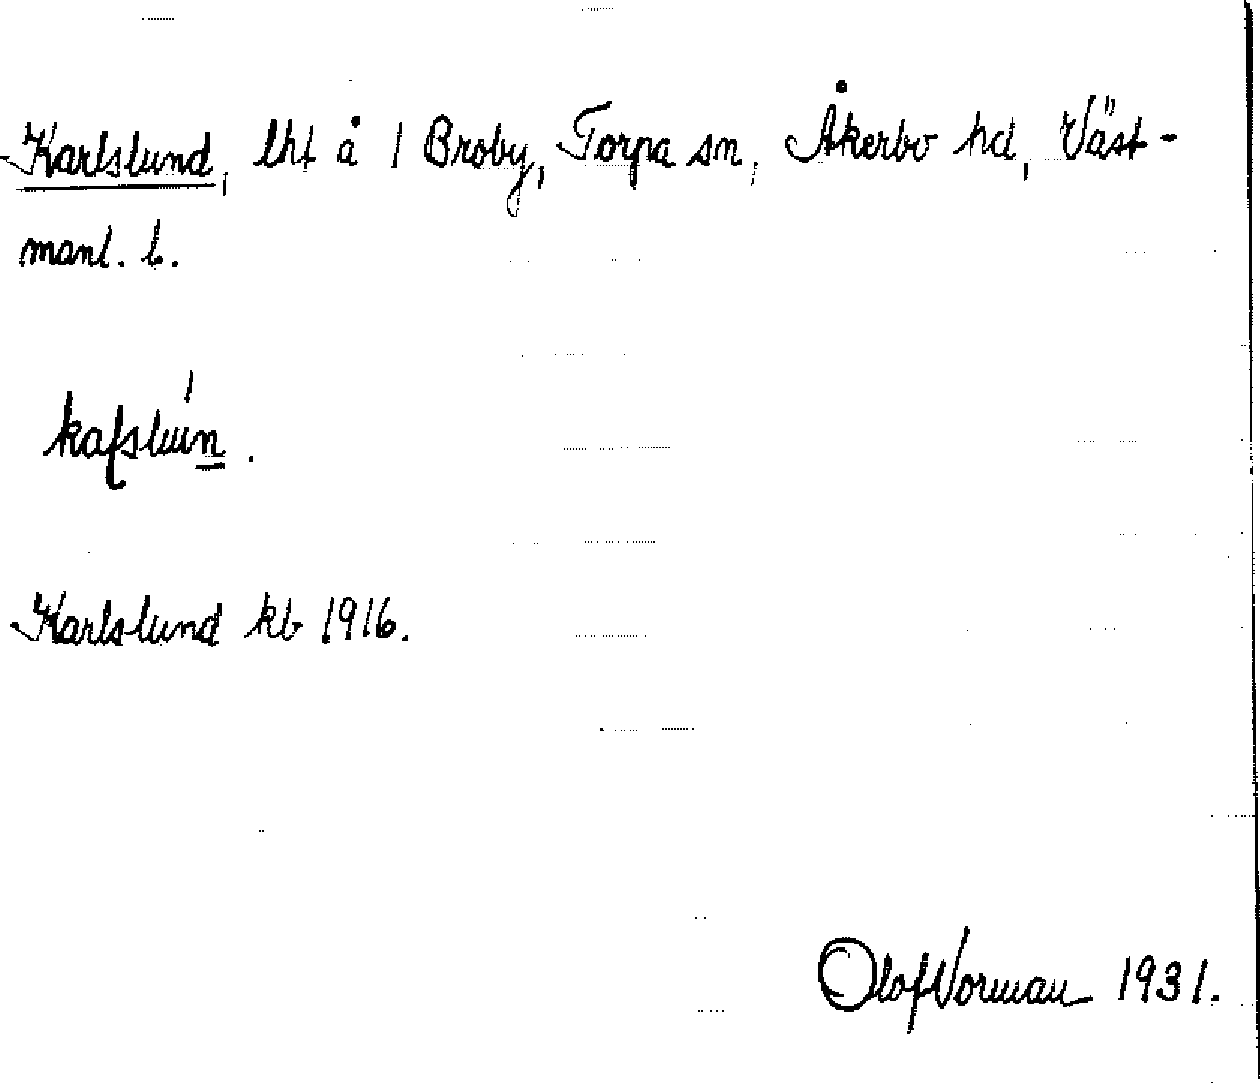 Karlslund, lht å 1 Broby, Torpa sn, Åkerbo hd, Väst-
manl. l.
kafslún.
Karlslund kb 1916.
Olof Norman 1931.